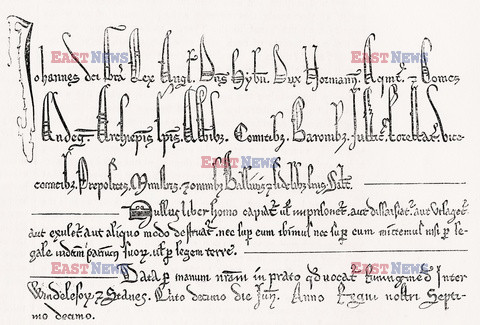 EAST NEWS EAST NEWS
Johannes dei gra Rex Angl. Dns Hybn. Dux Normann. Aqmt. z Comes
Andeg. Archiepis Epis, Abbibz. Comitibz. Baronibz. vice-
EAST NEWS
comitibz. Prepositis, z omnibz Ballivis z fidelibz suis Salt.
Nullus liber homo capiat' vl imprisonet' aut dissaisiat' aut utlaget'
aut exulet' aut aliquo modo destruat' nec sup eum ibimus nec sup eum mittemus nisi p le-
gale judicium parium suor. vl p legem terre.
EAST NEWS EAST NEWS
Data p manum nram in prato qd vocat' Runingmed Inter
Windelesor z Stanes. decimo die Jun. Anno Regni nostri Septi-
mo decimo.